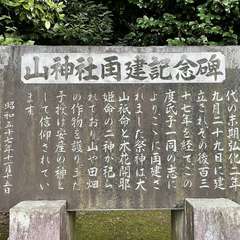 山神社再建記念碑
代の末期弘化二年
九月二十九日に建
立されその後百三
十七年を経てこの
度氏子一同の志に
よりここに再建さ
れました祭神は大
山祇命と木花開耶
姫命の二神が祀ら
れており山や田畑
の作物を護り又た
子授け安産の神と
して信仰されてい
ます
昭和五十七年十一月十五日